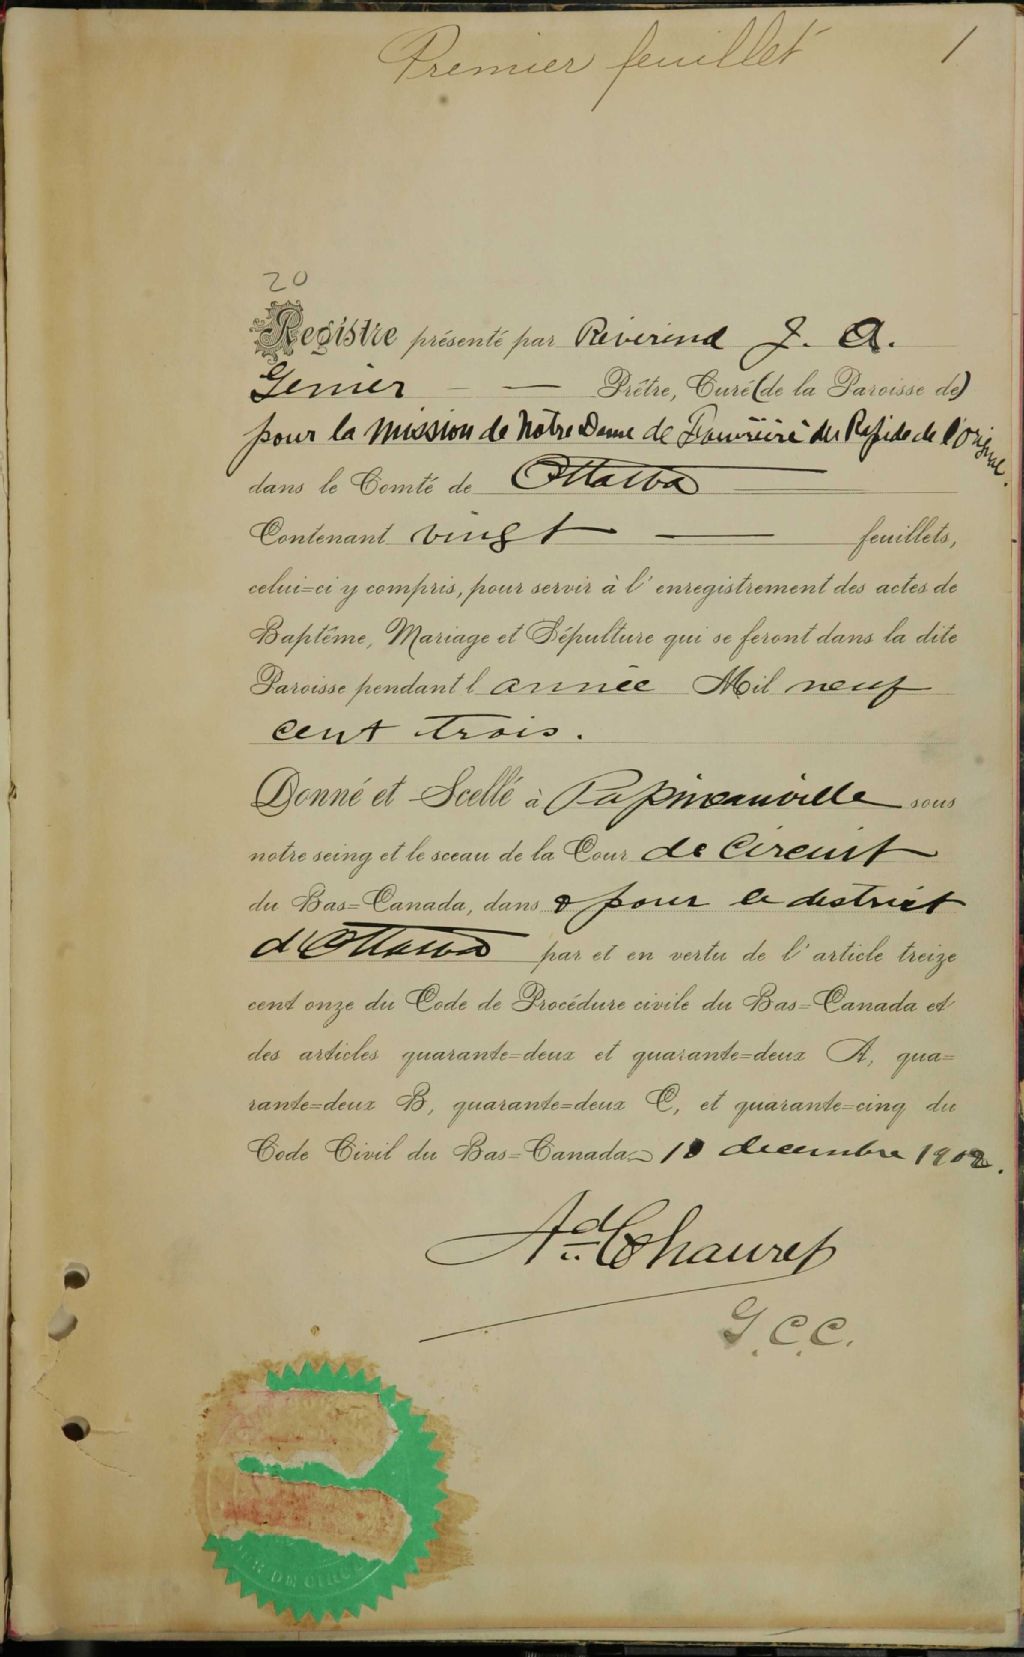 Premier feuillet 1
20
Registre présenté par Révérend J. A.
Genier — — Prêtre, Curé (de la Paroisse de)
pour la mission de Notre Dame de Fourvière du Rapide de l'Orignal.
dans le Comté de Ottawa
Contenant vingt — feuillets,
celui=ci y compris, pour servir à l'enregistrement des actes de
Baptême, Mariage et Sépulture qui se feront dans la dite
Paroisse pendant l année Mil neuf
cent trois.
Donné et Scellé à Papineauville sous
notre seing et le sceau de la Cour de Circuit
du Bas=Canada, dans & pour le district
d'Ottawa par et en vertu de l'article treize
cent onze du Code de Procédure civile du Bas=Canada et
des articles quarante=deux et quarante=deux A, qua=
rante=deux B, quarante=deux C, et quarante=cinq du
Code Civil du Bas=Canada decembre 1902.
Ad. Chauret
G.C.C.
DE CIRCU